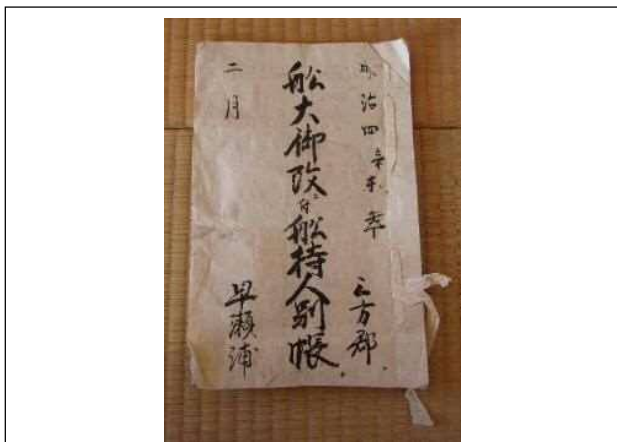 明治四辛未年 三方郡
舩大御改ニ付舩持人別帳
二月 早瀬浦